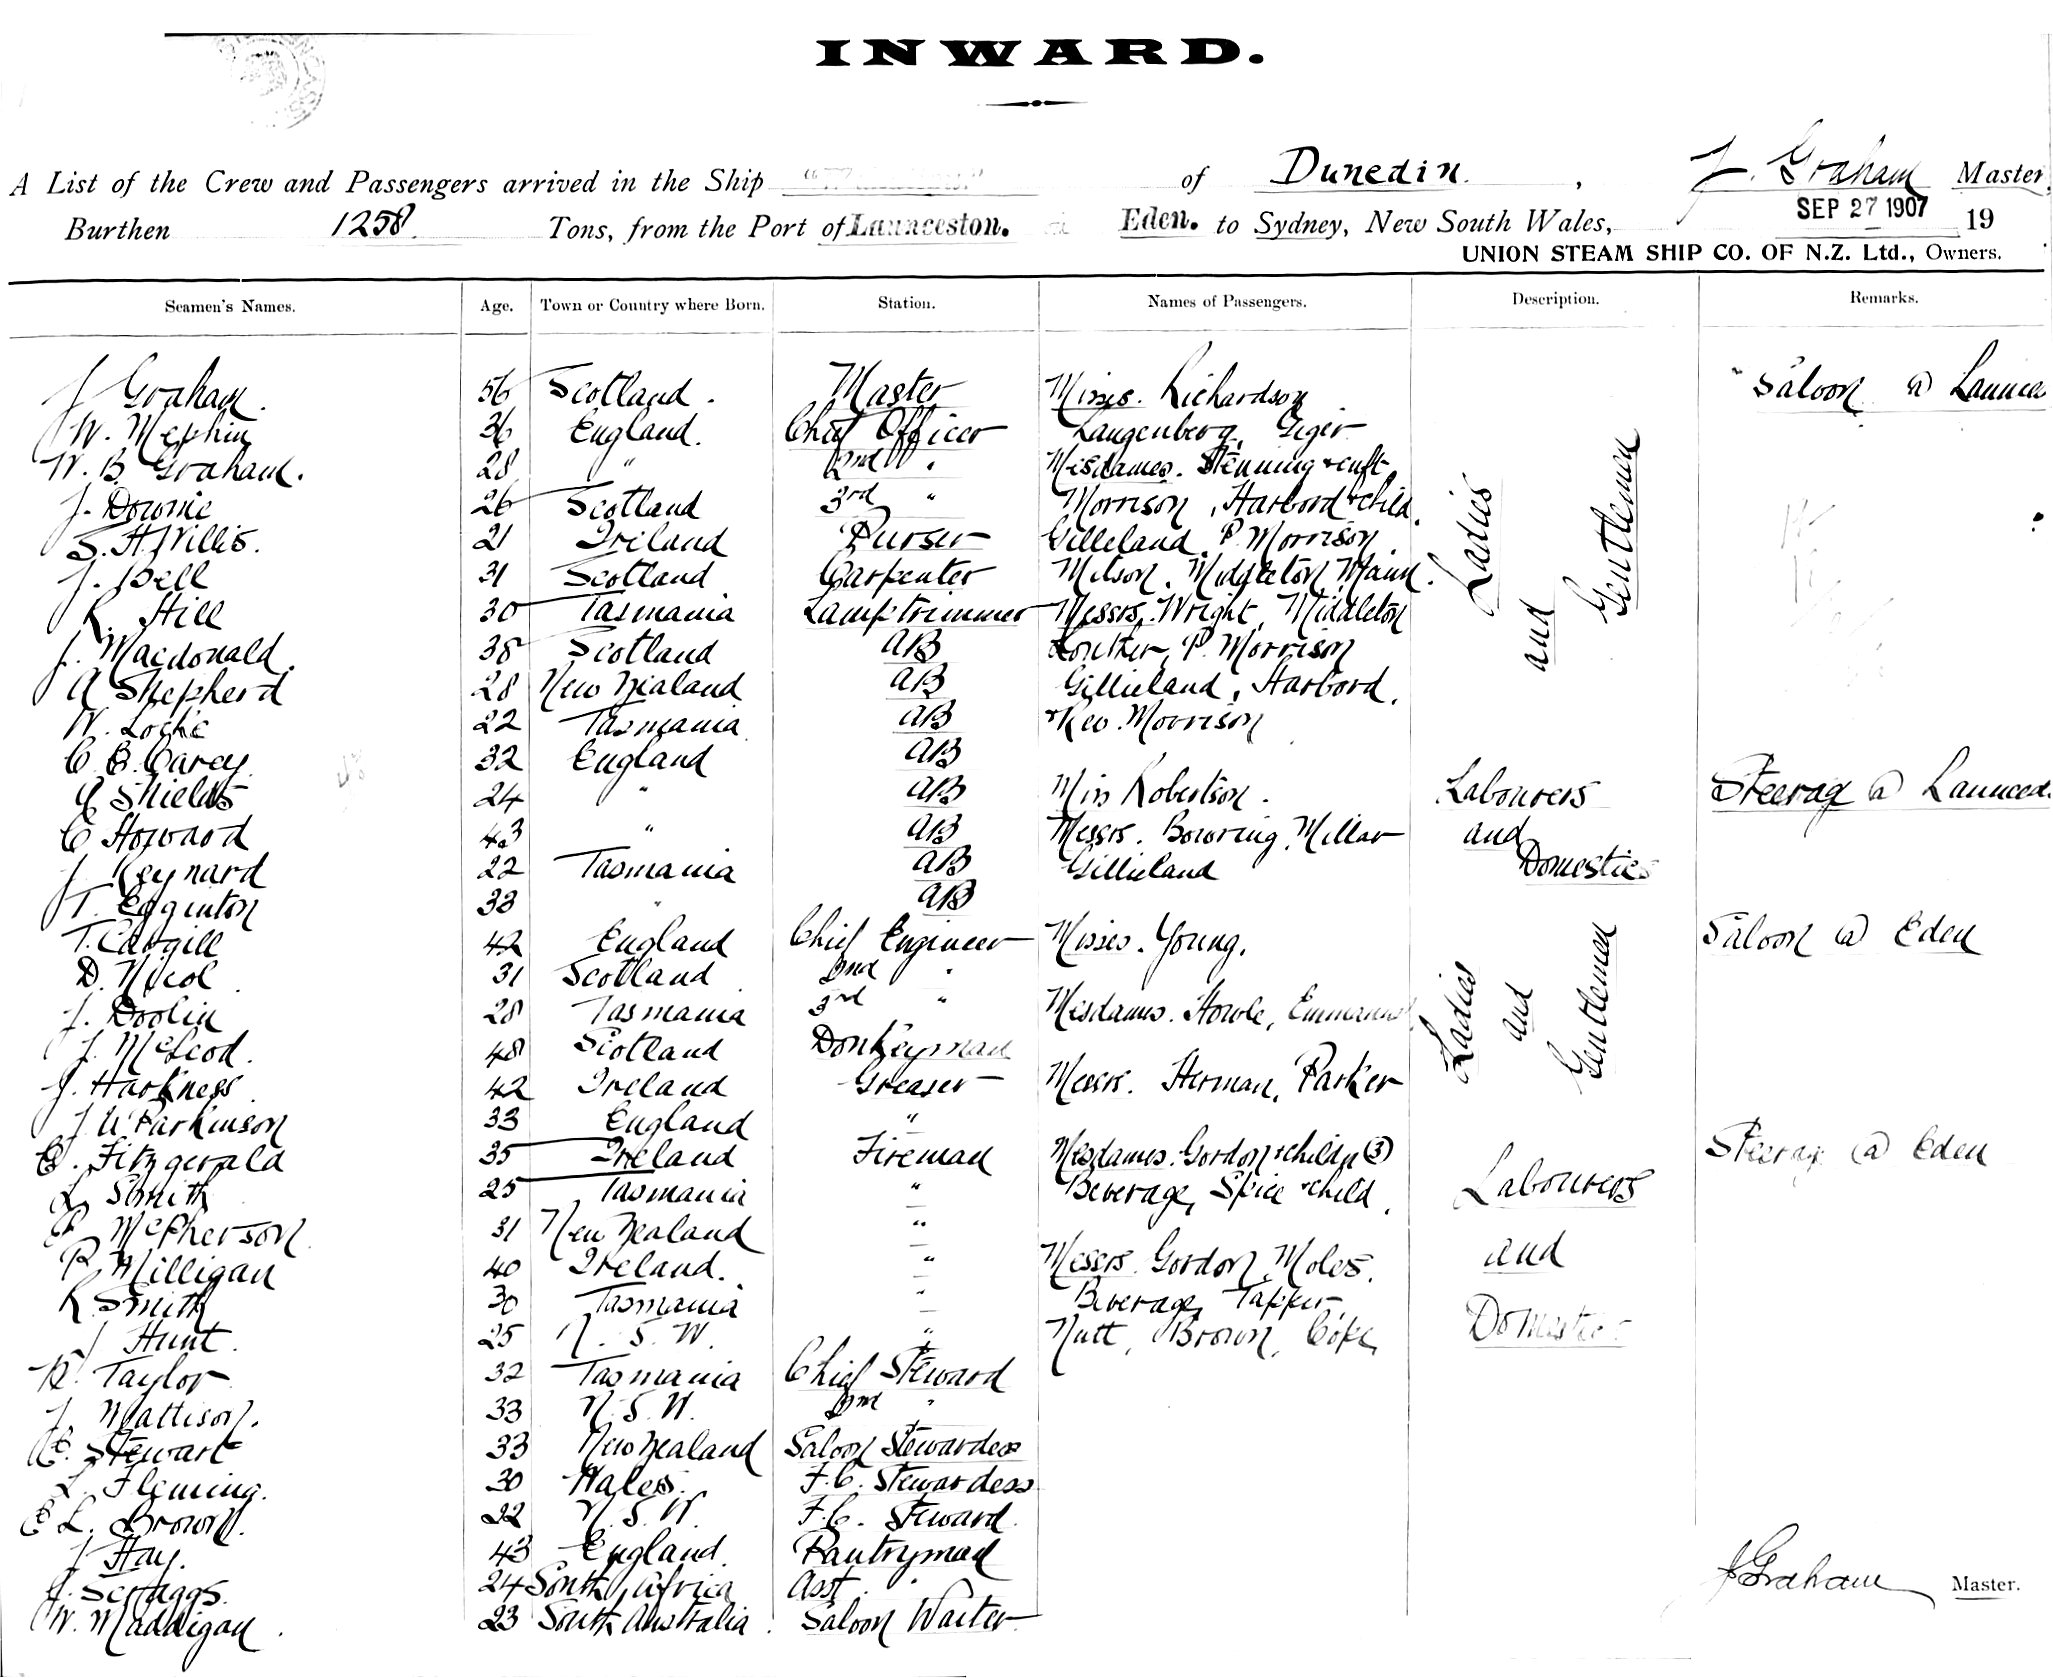 INWARD.
A List of the Crew and Passengers arrived in the Ship of Dunedin. , J. Graham Master,
Burthen 1258. Tons, from the Port of Launceston. Eden. to Sydney, New South Wales, SEP 27 1907 19
UNION STEAM SHIP CO. OF N.Z. Ltd., Owners.
Seamen's Names. Age. Town or Country where Born. Station. Names of Passengers. Description. Remarks.
J Graham. 56 Scotland. Master Misses. Richardson Saloon @
W. 36 England. Chief Officer Langenberg, Geiger
W. B. Graham. 28 " 2nd " Mesdames. Stenning
J. Downie 26 Scotland 3rd " Morrison, Harbord & child.
S. H. Willis. 21 Ireland Purser Gillieland, P. Morrison
J. Bell 31 Scotland Carpenter Middleton
R. Hill 30 Tasmania Lamptrimmer Messrs. Wright, Middleton
J. Macdonald. 38 Scotland AB P. Morrison
A Shepherd 28 New Zealand AB Gillieland, Harbord.
W. Locke 22 Tasmania AB & Rev. Morrison
Ladies and Gentlemen
C. E. Carey 32 England AB
Shields 24 " AB Miss Robertson. Labourers Steerage @
C Howard 43 " AB Messrs. Bowring, Millar and
J Reynard 22 Tasmania AB Gillieland Domestics
T. Egginton 33 " AB
T. Cargill 42 England Chief Engineer Misses. Young. Saloon @ Eden
D. Nicol 31 Scotland 2nd "
J. Doolin 28 Tasmania 3rd " Mesdames. Howle,
Ladies and Gentlemen
J. McLeod. 48 Scotland Donkeyman
J. Harkness 42 Ireland Greaser Messrs. Herman, Parker
J W Parkinson 33 England "
E. Fitzgerald 35 Ireland Fireman Mesdames. Gordon & childn (3) Steerage @ Eden
L Smith 25 Tasmania " Beverage, Spice & child. Labourers
McPherson 31 New Zealand "
R. Milligan 40 Ireland. " Messrs. Gordon, Moles. and
R. Smith 30 Tasmania " Beverage, Tapper,
J Hunt. 25 N. S. W. " Nutt, Brown, Coke Domestics
R. Taylor 32 Tasmania Chief Steward
J. Mattison. 33 N. S. W. 2nd "
Stewart 33 New Zealand Saloon Stewardess
L. Fleming. 30 Wales. F. C. Stewardess
E L. Brown. 22 N. S. W. F. C. Steward.
J Hay. 43 England. Pantryman
J. Scraggs. 24 South Africa Asst. "
W. Maddigan. 23 South Australia. Saloon Waiter
J Graham Master.